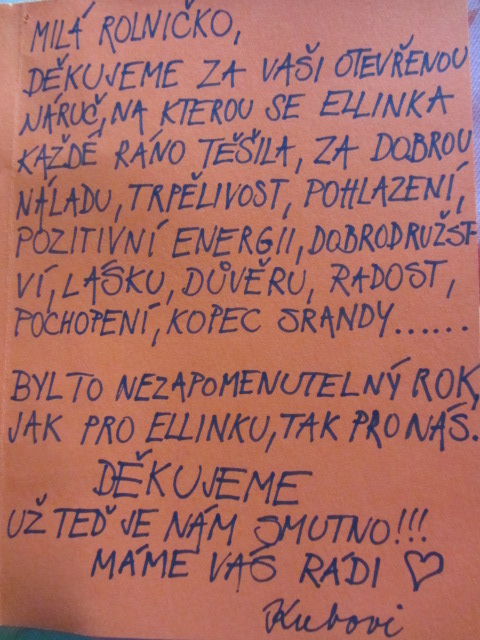 MILÁ ROLNIČKO,
DĚKUJEME ZA VAŠI OTEVŘENOU
NÁRUČ, NA KTEROU SE ELLINKA
KAŽDÉ RÁNO TĚŠILA, ZA DOBROU
NÁLADU, TRPĚLIVOST, POHLAZENÍ,
POZITIVNÍ ENERGII, DOBRODRUŽST-
VÍ, LÁSKU, DŮVĚRU, RADOST,
POCHOPENÍ, KOPEC SRANDY......
BYL TO NEZAPOMENUTELNÝ ROK,
JAK PRO ELLINKU, TAK PRO NÁS.
DĚKUJEME
UŽ TEĎ JE NÁM SMUTNO!!!
MÁME VÁS RÁDI ♡
Kubovi